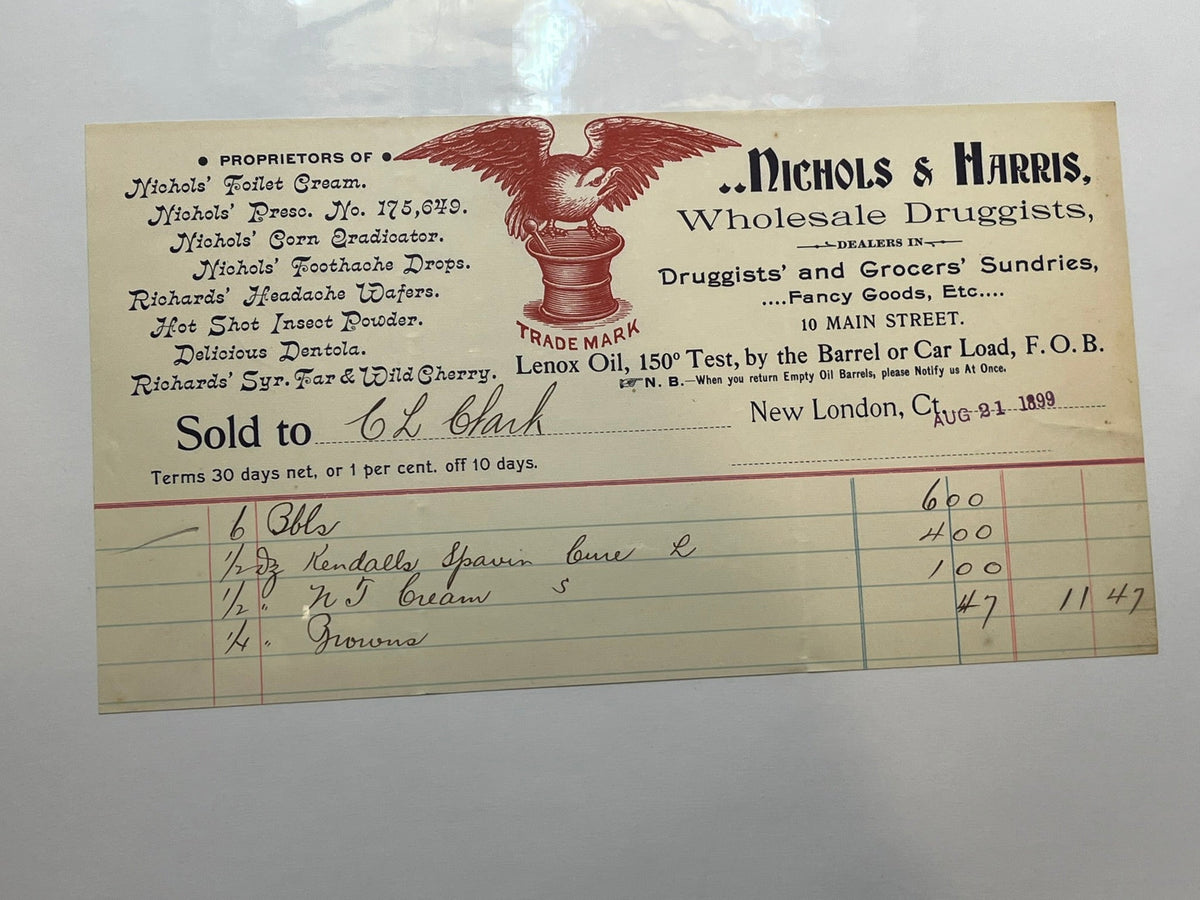 ● PROPRIETORS OF ●
Nichols' Toilet Cream.
Nichols' Presc. No. 175,649.
Nichols' Corn Eradicator.
Nichols' Toothache Drops.
Richards' Headache Wafers.
Hot Shot Insect Powder.
Delicious Dentola.
Richards' Syr. Tar & Wild Cherry.
TRADE MARK
..NICHOLS & HARRIS,
Wholesale Druggists,
DEALERS IN
Druggists' and Grocers' Sundries,
....Fancy Goods, Etc....
10 MAIN STREET.
Lenox Oil, 150º Test, by the Barrel or Car Load, F. O. B.
☞ N. B.—When you return Empty Oil Barrels, please Notify us At Once.
Sold to C L Clark
New London, Ct. AUG 21 1899
Terms 30 days net, or 1 per cent. off 10 days.
6 Bbls 6 00
1/2 Dz Kendalls Spavin Cure L 4 00
1/2 " N T Cream S 1 00
1/4 " Browns 47 11 47